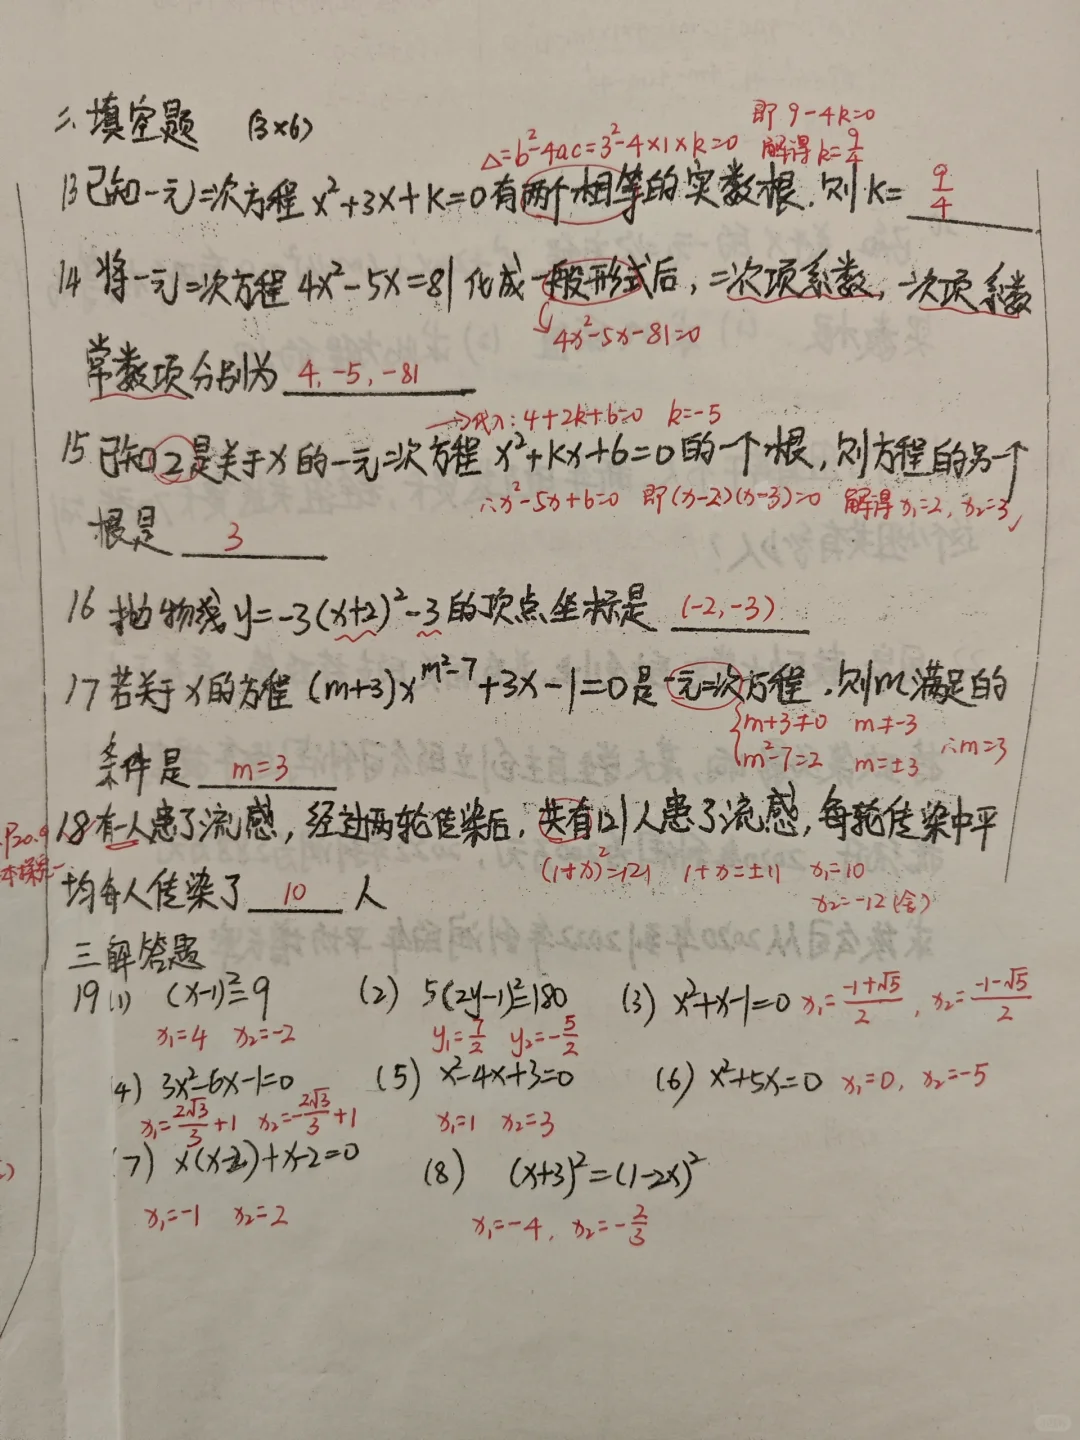 二.填空题 (3×6)
即 9-4k=0
△=b²-4ac=3²-4×1×k=0 解得 k=9/4
13 已知一元二次方程 x²+3x+k=0有两个相等的实数根.则k= 9/4
14 将一元二次方程 4x²-5x=81 化成一般形式后,二次项系数,一次项系数
4x²-5x-81=0
常数项分别为 4,-5,-81
→代入:4+2k+6=0 k=-5
15 已知2是关于x的一元二次方程 x²+kx+6=0的一个根,则方程的另一个
∴x²-5x+6=0 即(x-2)(x-3)=0 解得x₁=2, x₂=3
根是 3
16 抛物线y=-3(x+2)²-3的顶点坐标是 (-2,-3)
17 若关于x的方程 (m+3)x^(m²-7)+3x-1=0是一元二次方程.则m满足的
m+3≠0 m≠-3
∴m=3
m²-7=2 m=±3
条件是 m=3
P20.9
18 有一人患了流感,经过两轮传染后,共有121人患了流感,每轮传染中平
(1+x)²=121 1+x=±11 x₁=10
均每人传染了 10 人
x₂=-12(舍)
三解答题
19(1) (x-1)²=9 (2) 5(2y-1)²=180 (3) x²+x-1=0 x₁=(-1+√5)/2, x₂=(-1-√5)/2
x₁=4 x₂=-2 y₁=7/2 y₂=-5/2
(4) 3x²-6x-1=0 (5) x²-4x+3=0 (6) x²+5x=0 x₁=0, x₂=-5
x₁=2√3/3+1 x₂=-2√3/3+1 x₁=1 x₂=3
(7) x(x-2)+x-2=0 (8) (x+3)²=(1-2x)²
x₁=-1 x₂=2 x₁=-4, x₂=-2/3